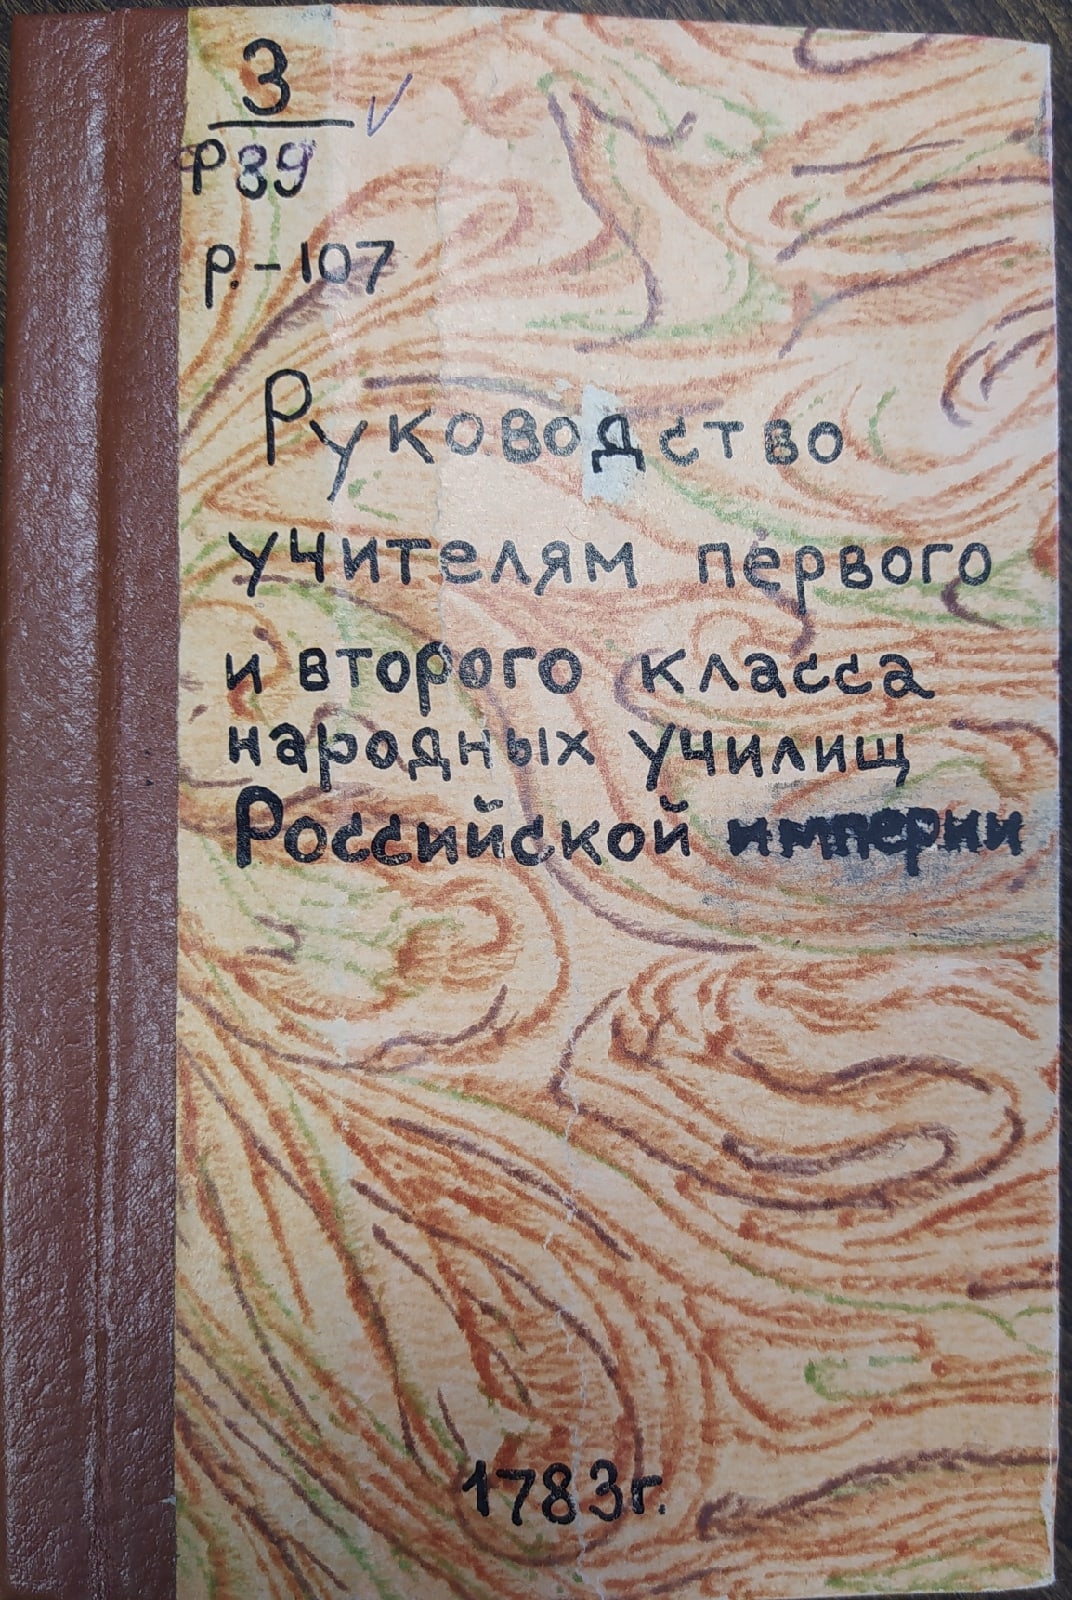 З
Р89
р.-107
Руководство
учителям первого
и второго класса
народных училищ
Российской империи
1783г.